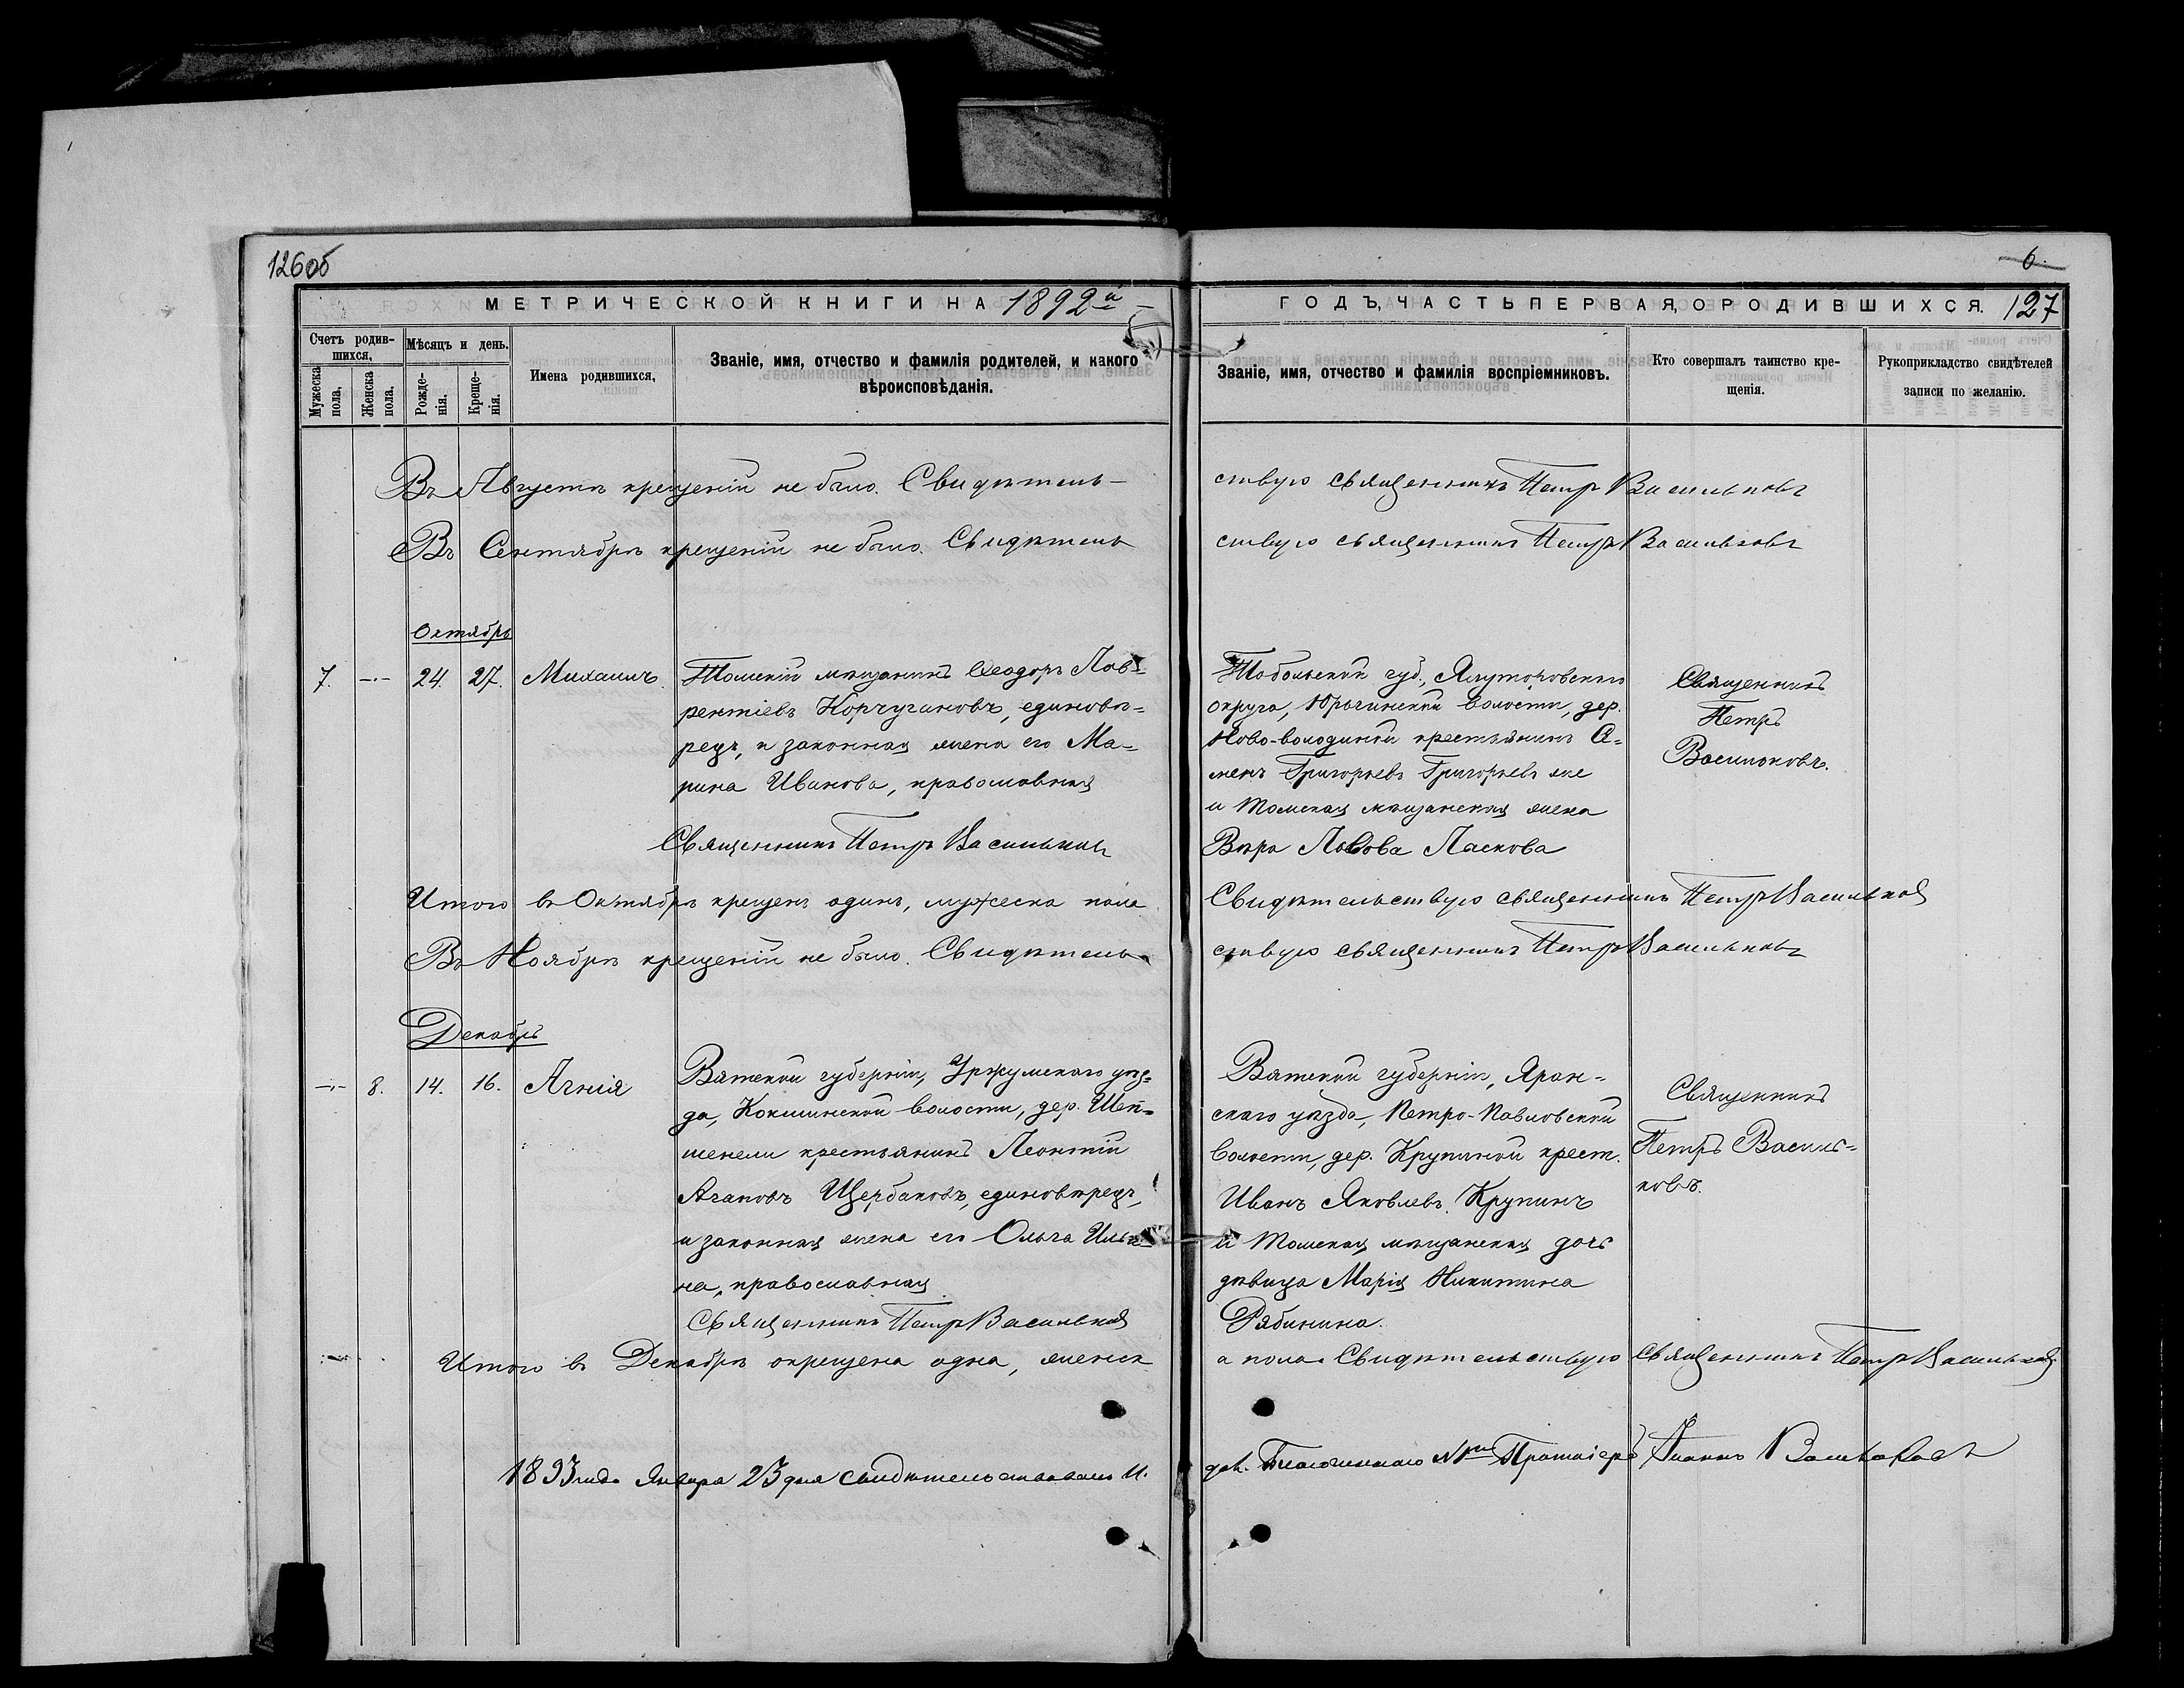 126об
МЕТРИЧЕСКОЙ КНИГИ НА 1892й
Счетъ родив-
шихся,
Мужеска
пола.
Женска
пола.
Мѣсяцъ и день.
Рожде-
нія.
Креще-
нія.
Имена родившихся,
Званіе, имя, отчество и фамилія родителей, и какого
вѣроисповѣданія.
Въ Августѣ крещеній не было. Свидѣтель-
Въ Сентябрѣ крещеній не было. Свидѣтель
Октябрь
7. -.- 24. 27. Михаилъ.
Томскій мѣщанинъ Ѳеодоръ Лав-
рентіевъ Корчугановъ, единовѣ-
рецъ, и законная жена его Ма-
рина Иванова, православная
Священникъ Петръ Васильковъ
Итого въ Октябрѣ крещенъ одинъ, мужеска пола
Въ Ноябрѣ крещеній не было. Свидѣтель
Декабрь
-.- 8. 14. 16. Агнія
Вятской губерніи, Уржумскаго уѣз-
да, Кокшинской волости, дер. Шеп-
шенели крестьянинъ Леонтій
Агаповъ Щербаковъ, единовѣрецъ,
и законная жена его Ольга Ильи-
на, православная
Священникъ Петръ Васильковъ
Итого въ Декабрѣ окрещена одна, женск
1893 года Января 23 дня свидѣтельствовалъ И.
6.
ГОДЪ, ЧАСТЬ ПЕРВАЯ, О РОДИВШИХСЯ. 127
Званіе, имя, отчество и фамилія воспріемниковъ.
Кто совершалъ таинство кре-
щенія.
Рукоприкладство свидѣтелей
записи по желанію.
ствую священникъ Петръ Васильковъ
ствую священникъ Петръ Васильковъ
Тобольской губ., Ялуторовскаго
округа, Юргинской волости, дер.
Ново-володиной крестьянинъ Се-
менъ Григорьевъ Григорьевъ же
и Томская мѣщанская жена
Вѣра Львова Ласкова
Священникъ
Петръ
Васильковъ.
Свидѣтельствую священникъ Петръ Васильковъ
ствую священникъ Петръ Васильковъ
Вятской губерніи, Яран-
скаго уѣзда, Петро-Павловской
волости, дер. Крупиной крест.
Иванъ Яковлевъ Крупинъ
и Томская мѣщанская дочь
дѣвица Марія Никитина
Рябинина.
Священникъ
Петръ Василь-
ковъ.
а пола. Свидѣтельствую священникъ Петръ Васильковъ
дол. Благочиннаго №1го Протоіерей Іоаннъ Васильковъ